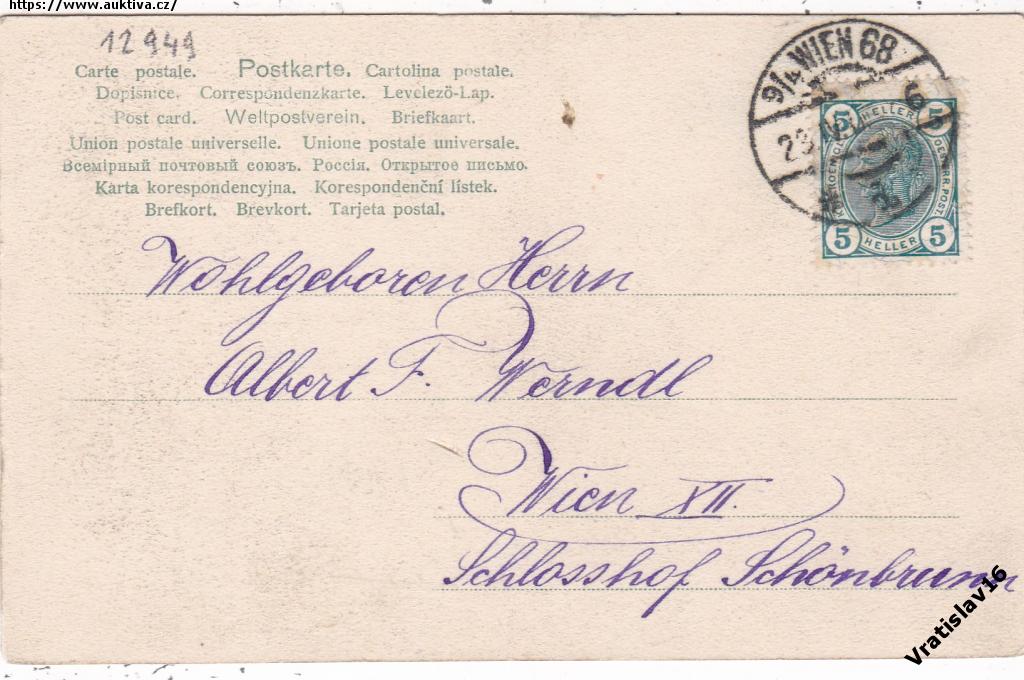 https://www.auktiva.cz/
12949
Carte postale. Postkarte. Cartolina postale.
Dopisnice. Correspondenzkarte. Levelező-Lap.
Post card. Weltpostverein. Briefkaart.
Union postale universelle. Unione postale universale.
Всемірный почтовый союзъ. Россія. Открытое письмо.
Karta korespondencyjna. Korespondenční lístek.
Brefkort. Brevkort. Tarjeta postal.
9/4 WIEN 68
5 HELLER 5
5 HELLER 5
Wohlgeboren Herrn
Albert F. Werndl
Wien XII.
Schlosshof Schönbrunn
Vratislav16